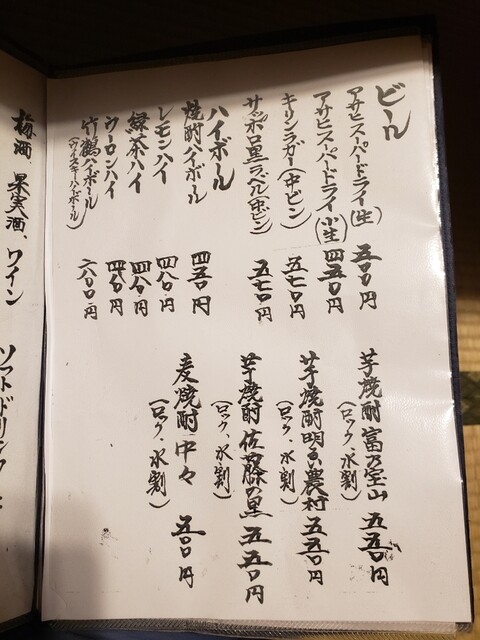 ビール
アサヒスーパードライ(生) 五〇〇円
アサヒスーパードライ(小生) 四五〇円
キリンラガー(中ビン) 五七〇円
サッポロ黒ラベル(中ビン) 五七〇円
ハイボール
焼酎ハイボール 四五〇円
レモンハイ 四八〇円
緑茶ハイ 四八〇円
ウーロンハイ 四八〇円
竹鶴ハイボール 六八〇〇円
(ウイスキーハイボール)
芋焼酎 富乃宝山 五五〇円
(ロック、水割)
芋焼酎 明るい農村 五五〇円
(ロック、水割)
芋焼酎 佐藤の黒 五五〇円
(ロック、水割)
麦焼酎 中々 五〇〇円
(ロック、水割)
梅酒、果実酒、ワイン
ソフトドリンク